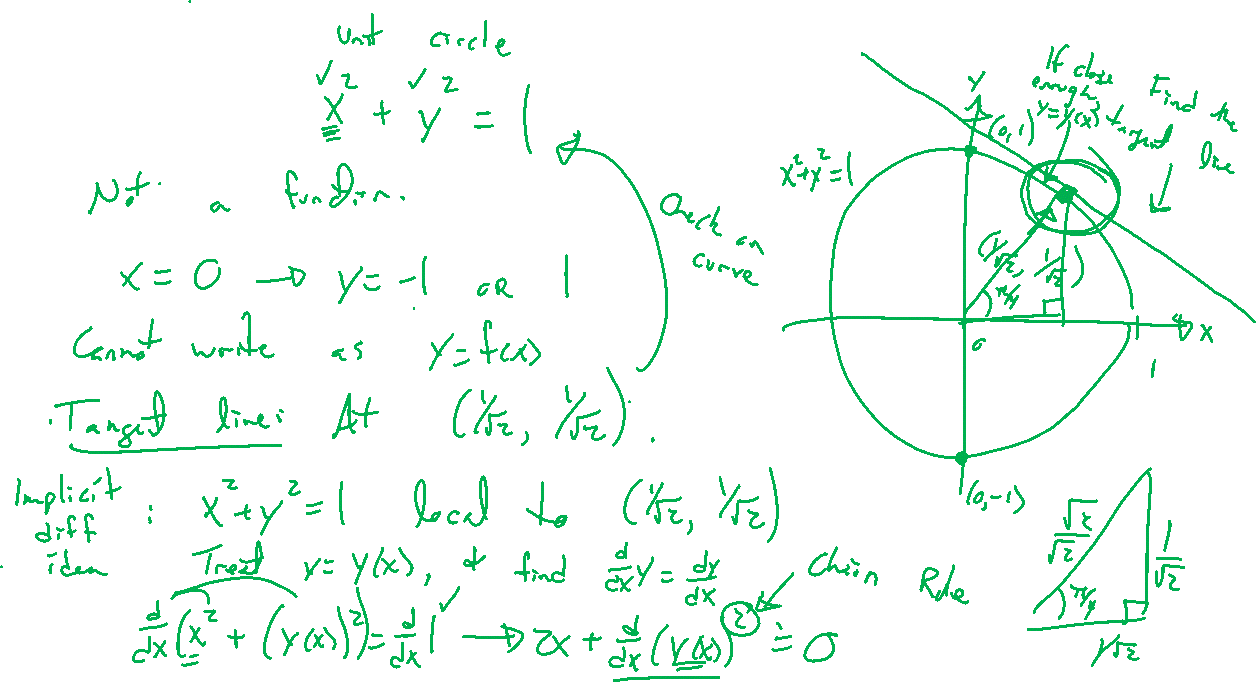 Unit circle
x² + y² = 1
Not a function.
x = 0 → y = -1 or 1
Cannot write as y = f(x)
Tangent line: At (1/√2, 1/√2).
Check on
curve
Implicit
diff
idea : x² + y² = 1 local to (1/√2, 1/√2)
Treat y = y(x), & find d/dx y = dy/dx
Chain Rule
d/dx (x² + (y(x))²) = d/dx 1 → 2x + d/dx (y(x))² = 0
If close
enough
y = y(x)
Find the
tangent
line
Y
(0, 1)
x² + y² = 1
(1/√2, 1/√2)
π/4
0
1
X
(0, -1)
√2/√2
1/√2
π/4
1/√2